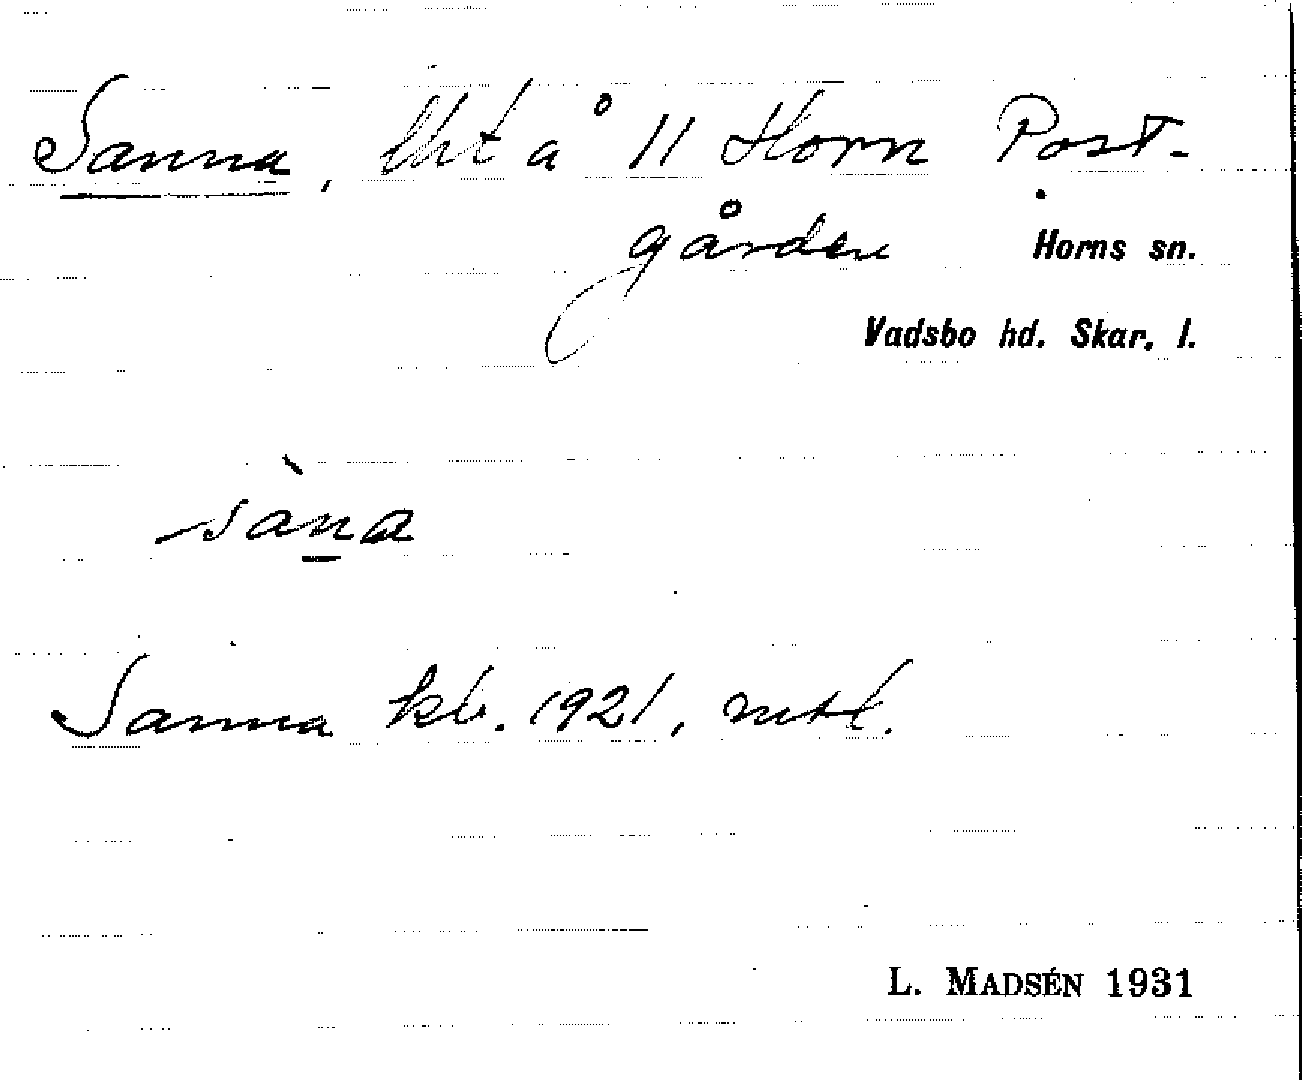 Sanna, lht å 11 Horn Post-
gården
Horns sn.
Vadsbo hd. Skar. l.
sàna
Sanna kb. 1921, mtl.
L. MADSÉN 1931